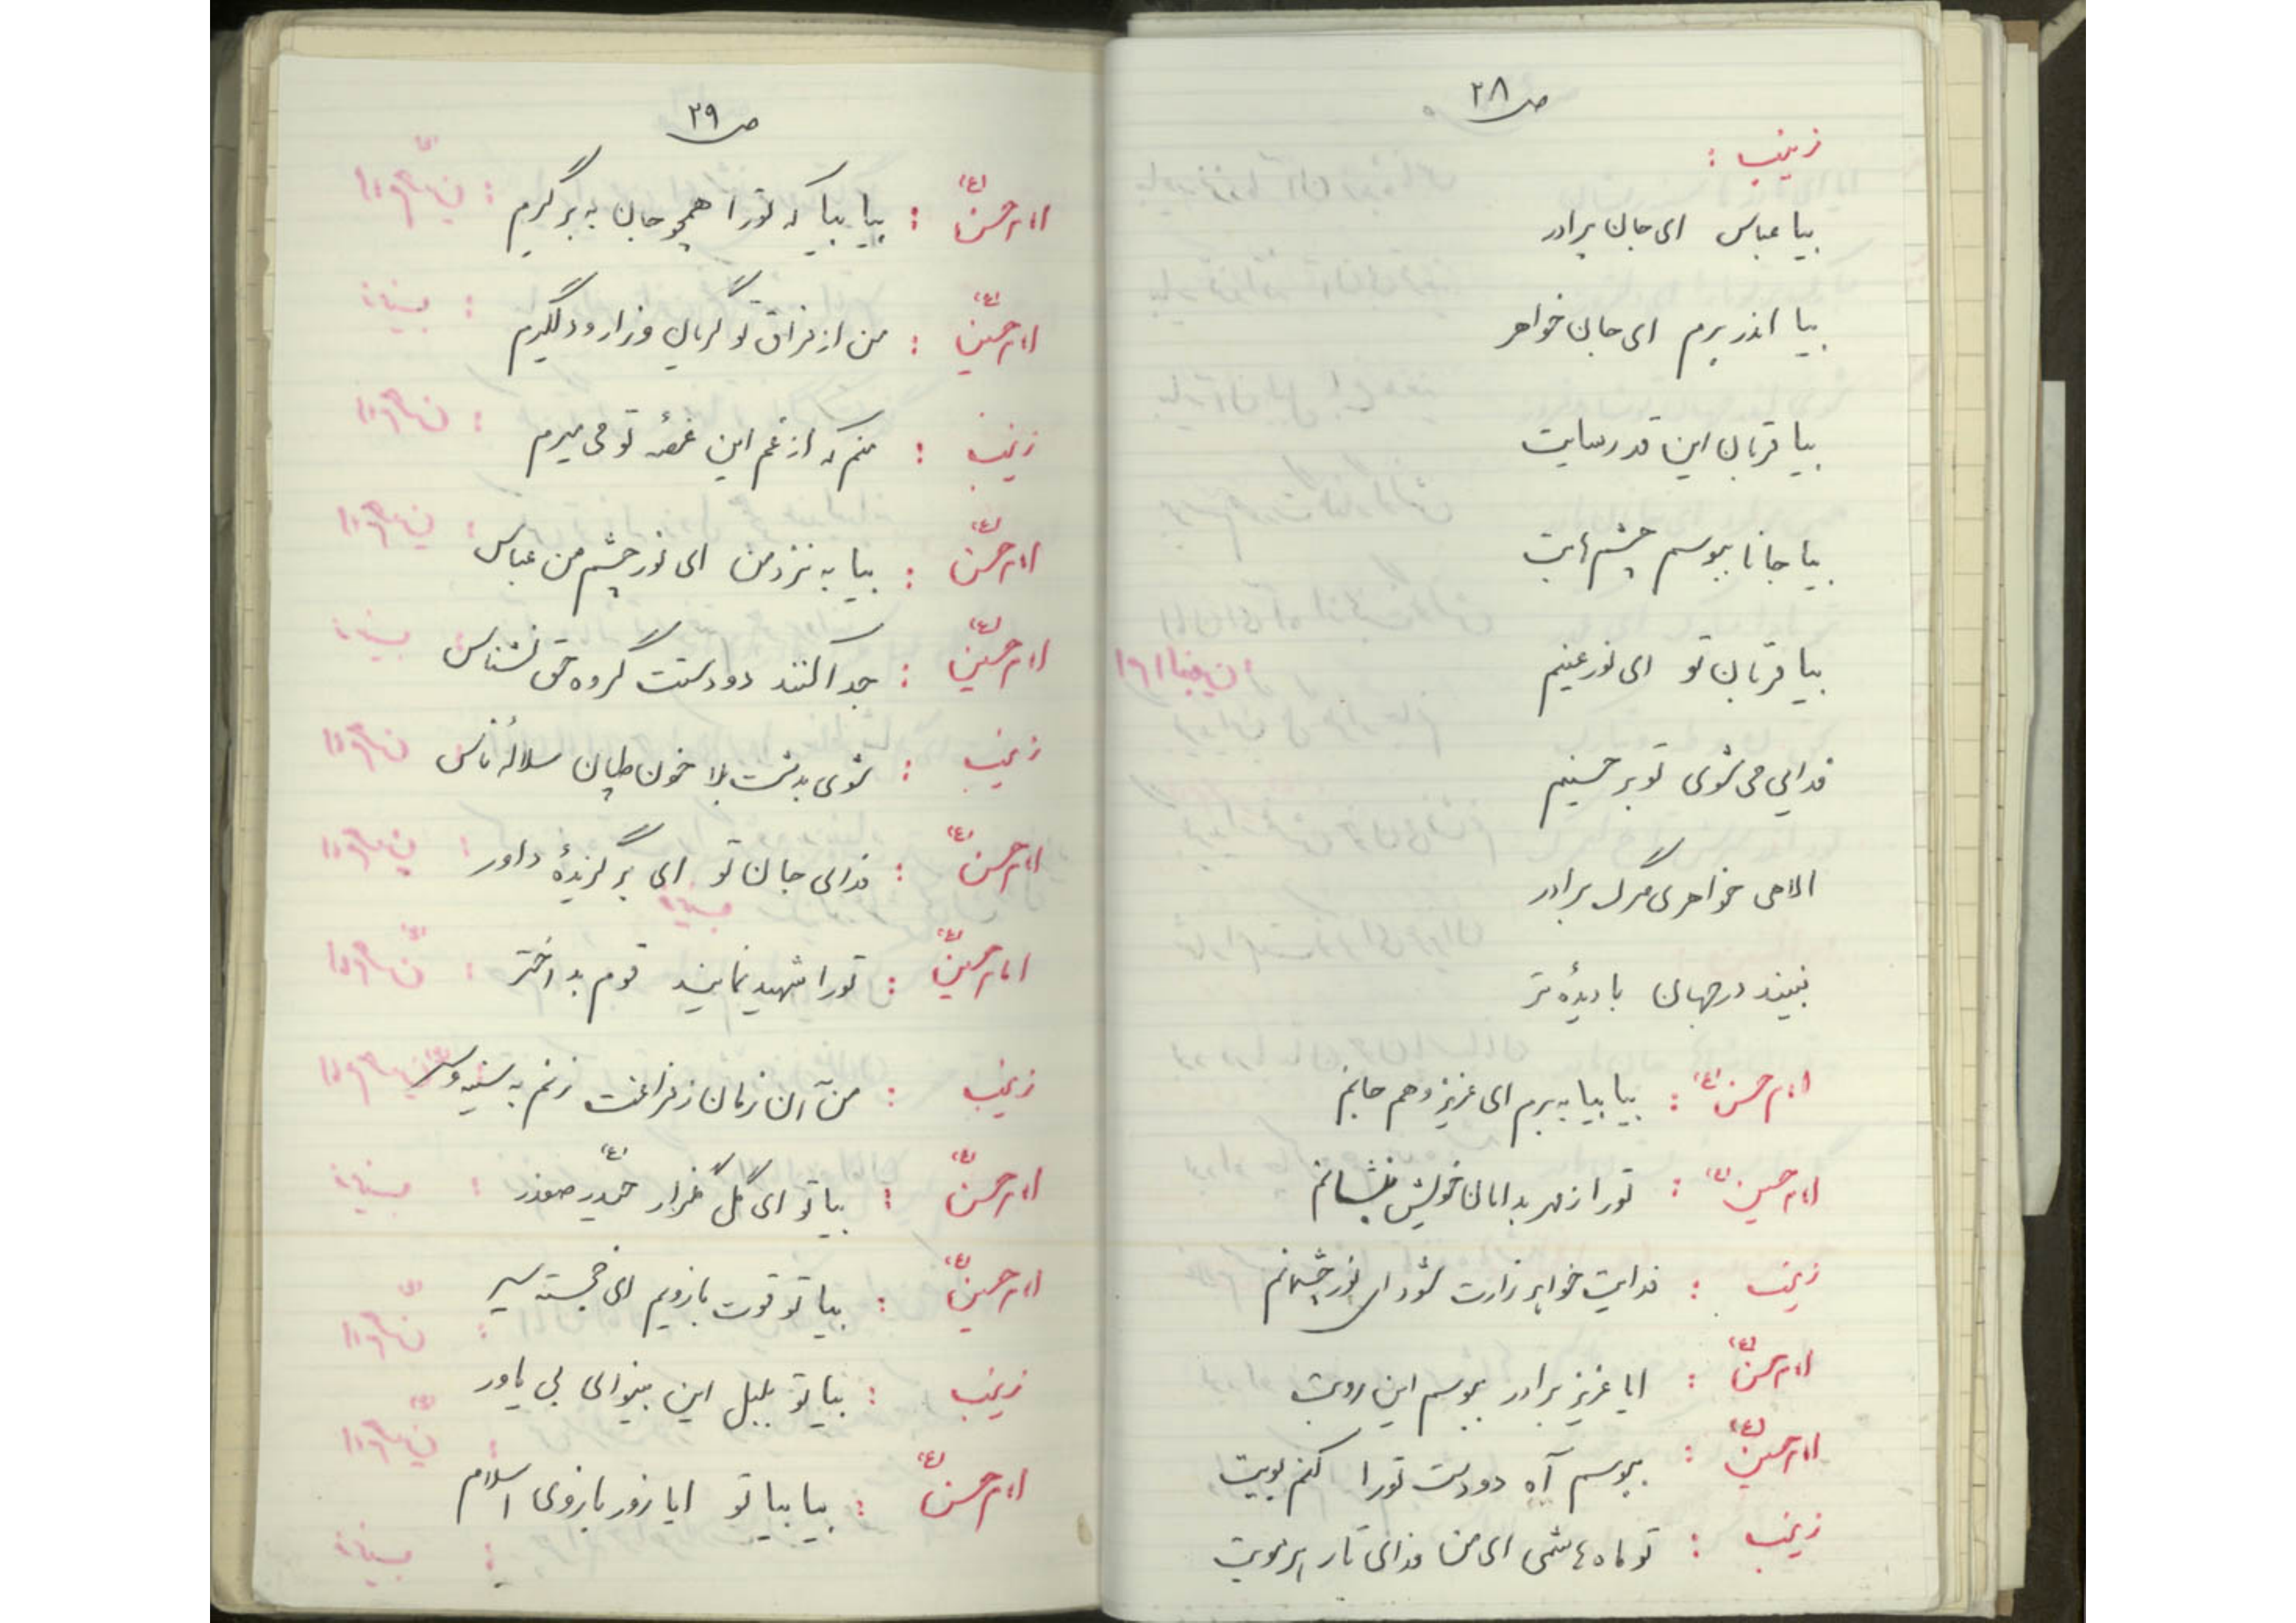 ص ۲۸
زینب :
بیا عباس ای جان برادر
بیا اندر برم ای جان خواهر
بیا قربان این قد رسایت
بیا جانا ببوسم چشمهایت
بیا قربان تو ای نور عینم
فدایی می شوی تو بر حسینم
الاهی خواهری مرگ برادر
نبیند در جهان با دیدهٔ تر
امام حسن (ع) : بیا بیا به برم ای عزیز و هم جانم
امام حسین (ع) : تو را ز مهر بدامان خویش بنشانم
زینب : فدایت خواهر زارت شود ای نور چشمانم
امام حسن (ع) : ایا عزیز برادر ببوسم این رویت
امام حسین (ع) : ببوسم آه دو دست تو را کنم بویت
زینب : تو ماه هاشمی ای من فدای تار هر مویت
ص ۲۹
امام حسن (ع) : بیا بیا که تو را همچو جان به بر گیرم
امام حسین (ع) : من از فراق تو گریان و زار و دلگیرم
زینب : منم که از غم این غصهٔ تو می میرم
امام حسن (ع) : بیا به نزد من ای نور چشم من عباس
امام حسین (ع) : جدا کنند دو دستت گروه حق نشناس
زینب : شوی بدشت بلا خون طپان سلالهٔ ناس
امام حسن (ع) : فدای جان تو ای برگزیدهٔ داور
امام حسین (ع) : تو را شهید نمایند قوم بد اختر
زینب : من آن زمان ز فراغت زنم به سینه و سر
امام حسن (ع) : بیا تو ای گل گلزار حیدر (ع) صفدر
امام حسین (ع) : بیا تو قوت بازویم ای خجسته سیر
زینب : بیا تو بلبل این بینوای بی یاور
امام حسن (ع) : بیا بیا تو ایا زور بازوی اسلام